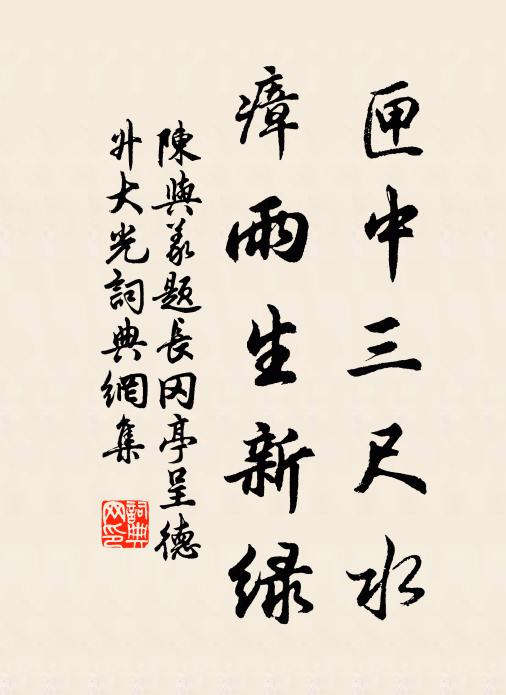 匣中三尺水
瘴雨生新绿
陳與義題長冈亭呈德
升大光詞典網集
詞典
网印